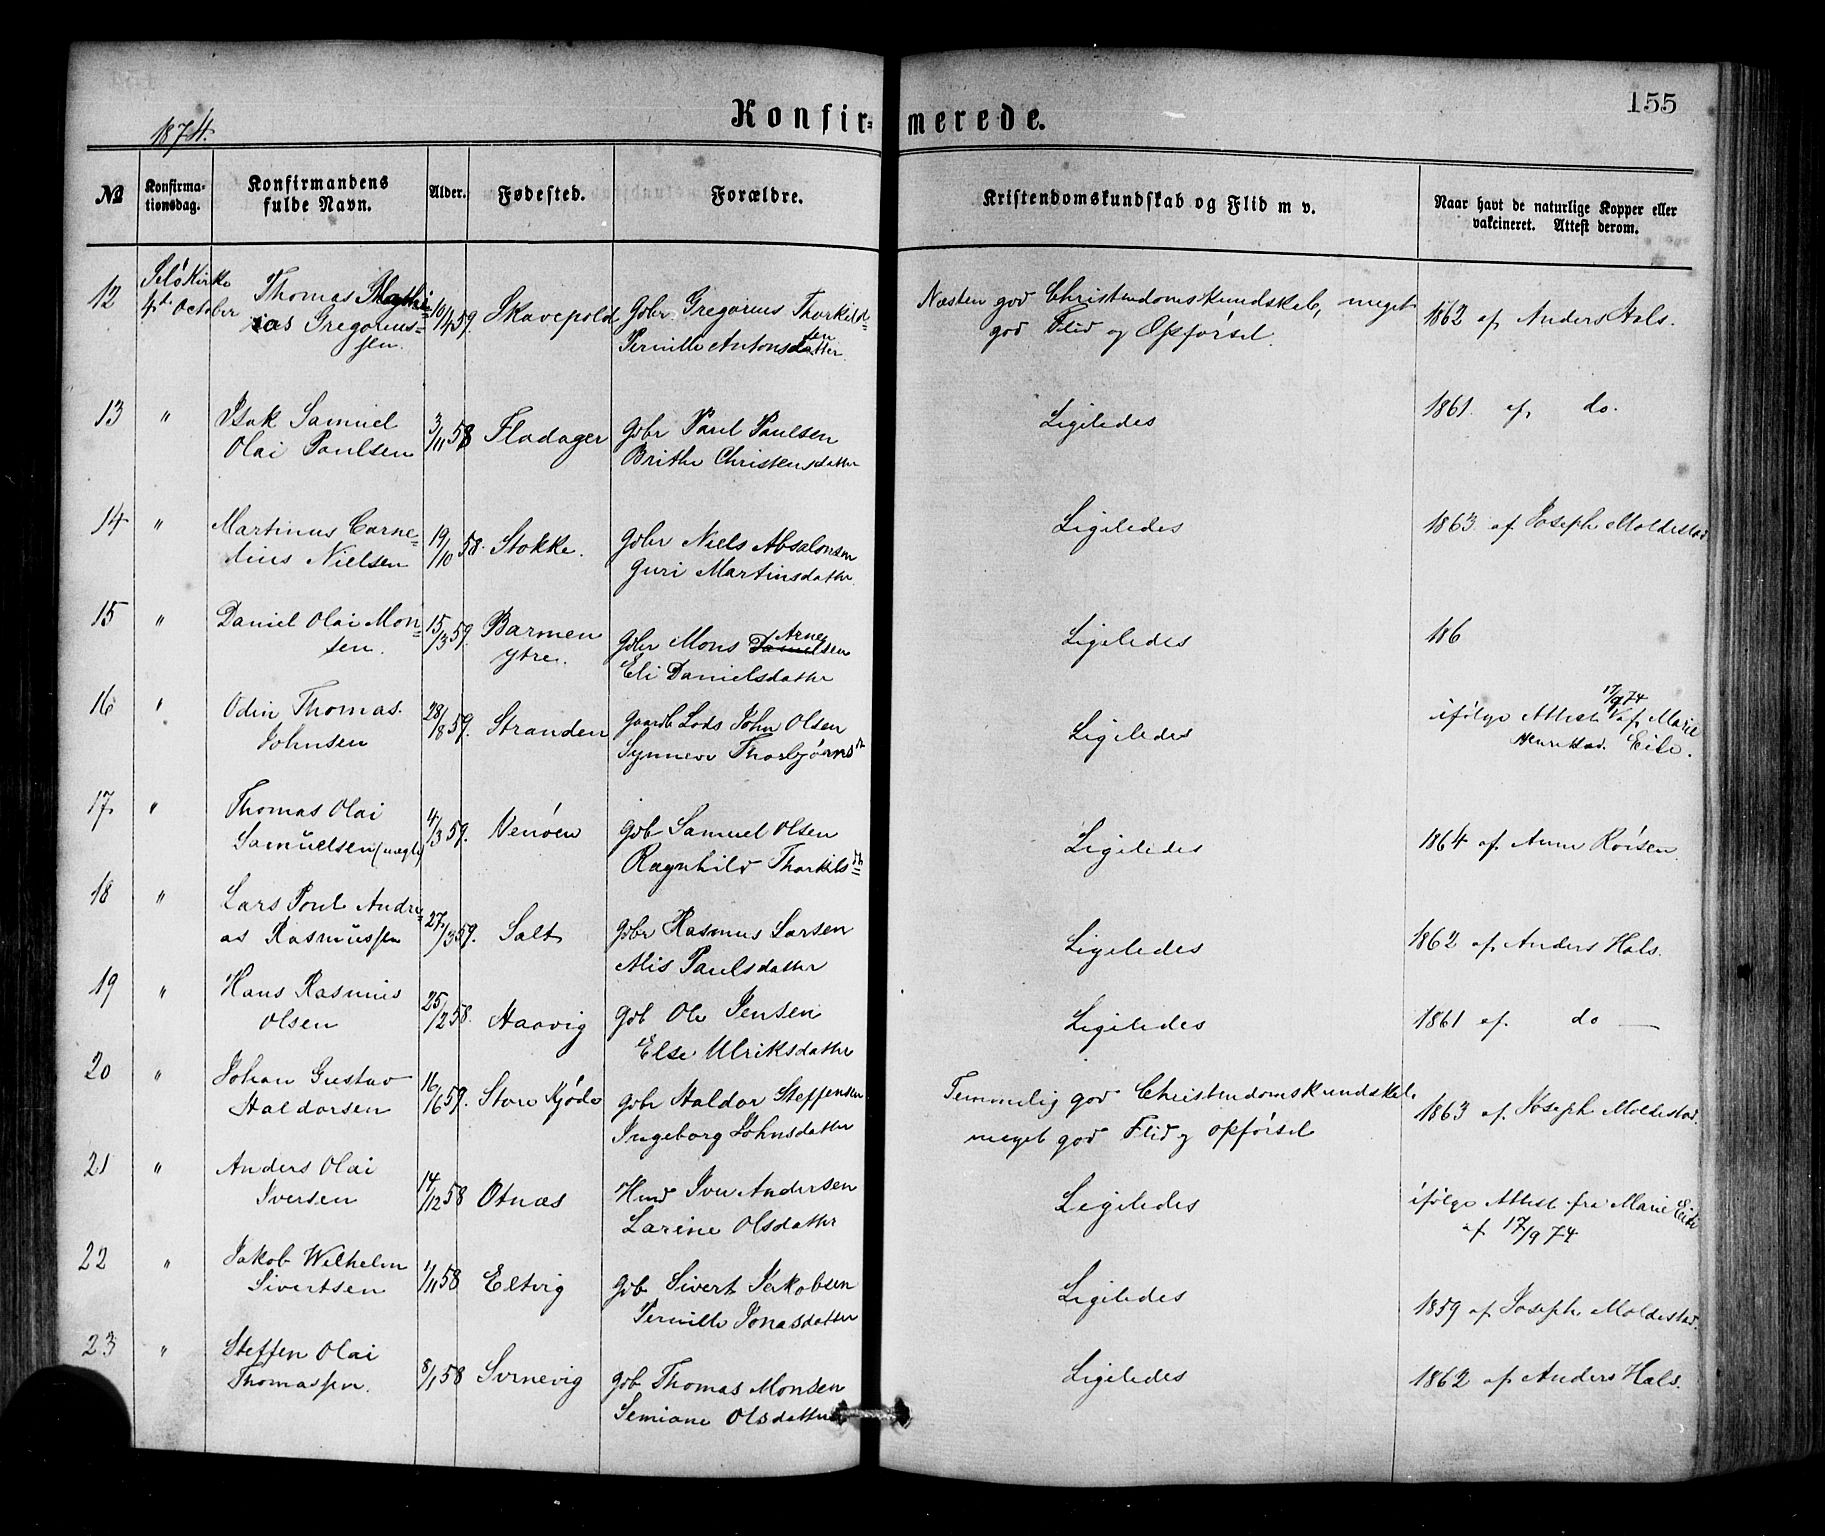 155
Konfir= merede.
1874.
No Konfirma- tionsdag. Konfirmandens fulde Navn. Alder. Fødested. Forældre. Kristendomskundskab og Flid m v. Naar havt de naturlige Kopper eller vakcineret. Attest derom.
12 Selö Kirke 4de October Thomas Matthi=
ias Gregorius=
sen. 10/4 59. Skavepold Gdbr Gregorius Thorkild=
sen
Pernille Antonsdatter. Næsten god Christendomskundskab, meget
god Flid og Opførsel. 1862 af Anders Hals.
13 " Isak Samuel
Olai Paulsen 3/11 58 Fladager Gdbr Paul Paulsen
Brithe Christensdatter Ligeledes 1861. af do.
14 " Martinus Corne=
lius Nielsen 19/10 58. Stokke. Gdbr Niels Absalonsen
Guri Martinsdatter. Ligeledes 1863 af Joseph Moldestad
15 " Daniel Olai Mon=
sen. 15/3 59. Barmen
ytre. Gdbr Mons Danielsen Arne
Eli Danielsdatter Ligeledes 186
16 " Odin Thomas
Johnsen 28/8 59. Stranden Gaardb Lods John Olsen
Synneve Thorbjörnsdr Ligeledes ifølge Attest 17/9 74 af Marie
Eide.
17. " Thomas Olai
Samuelsen (uægte) 4/3 59. Venöen Gdb Samuel Olsen
Ragnhild Thorkilsdtr Ligeledes 1864 af. Anne Röisen.
18 " Lars Poul Andre=
as Rasmussen 27/3 59. Salt Gdbr Rasmus Larsen
Alis Paulsdatter Ligeledes 1862 af. Anders Hals.
19 " Hans Rasmus
Olsen 25/12 58. Haavig Gdb Ole Jensen
Else Ulriksdatter Ligeledes 1861 af. do —
20 " Johan Gustav
Haldorsen 16/6 59. Store Kjöde Gdbr Haldor Steffensen
Ingeborg Johnsdatter Temmelig god Christendomskundskab.
meget god Flid og Opførsel 1863 af Joseph Moldestad.
21 " Anders Olai
Iversen 14/12 58 Otnæs Hmd Iver Andersen
Larine Olsdatter Ligeledes ifølge Attest fra Marie Eide
af 17/9 74
22 " Jakob Wilhelm
Sivertsen 1/11 58 Eltvig Gdb Sivert Jakobsen
Pernille Jonasdatter Ligeledes 1859 af Joseph Moldestad.
23 " Steffen Olai
Thomassen. 8/1 58 Sørnevig Gdb Thomas Monsen
Semiane Olsdatter Ligeledes 1862 af Anders Hals.